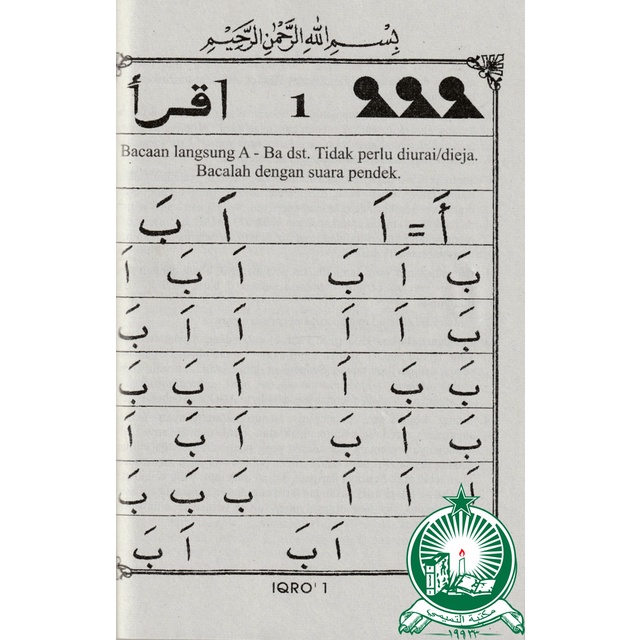 بِسْمِ اللهِ الرَّحْمٰنِ الرَّحِيْمِ
1 اقرأ
Bacaan langsung A - Ba dst. Tidak perlu diurai/dieja.
Bacalah dengan suara pendek.
أَ = اَ اَ بَ
بَ اَ بَ اَ بَ اَ
بَ اَ اَ اَ اَ بَ
بَ بَ اَ اَ بَ بَ
بَ اَ بَ اَ بَ اَ
اَ اَ اَ بَ بَ بَ
اَ بَ اَ بَ
IQRO' 1
مكتبة